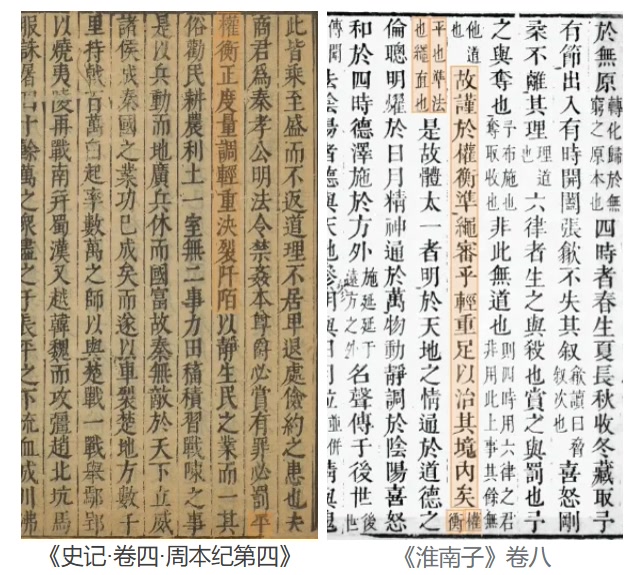 此皆乘至盛而不返道理不居卑退處儉約之患也夫
商君爲秦孝公明法令禁姦本尊爵必賞有罪必罰平
權衡正度量調輕重決裂阡陌以靜生民之業而一其
俗勸民耕農利土一室無二事力田穡積習戰陳之事
是以兵動而地廣兵休而國富故秦無敵於天下立威
諸侯成秦國之業功已成矣而遂以車裂楚地方數千
里持戟百萬白起率數萬之師以與楚戰一戰舉鄢郢
以燒夷陵再戰南并蜀漢又越韓魏而攻彊趙北坑馬
服誅屠四十餘萬之衆盡之于長平之下流血成川沸
《史记·卷四·周本纪第四》
於無原轉化歸於無窮之原本也四時者春生夏長秋收冬藏取予
有節出入有時開闔張歙不失其叙歙讀曰脅叙次也喜怒剛
柔不離其理理道也六律者生之與殺也賞之與罰也予
之與奪也予布施也奪取收也非此無道也則四時用六律之君非用此上事其餘無
他道也故謹於權衡準繩審乎輕重足以治其境内矣權衡
平也準法也繩直也是故體太一者明於天地之情通於道德之
倫聰明燿於日月精神通於萬物動靜調於陰陽喜怒
和於四時德澤施於方外施延延于遠方之外名聲傳于後世後世
傳聞法陰陽者德與天地參明與日月並並併精與鬼
《淮南子》卷八